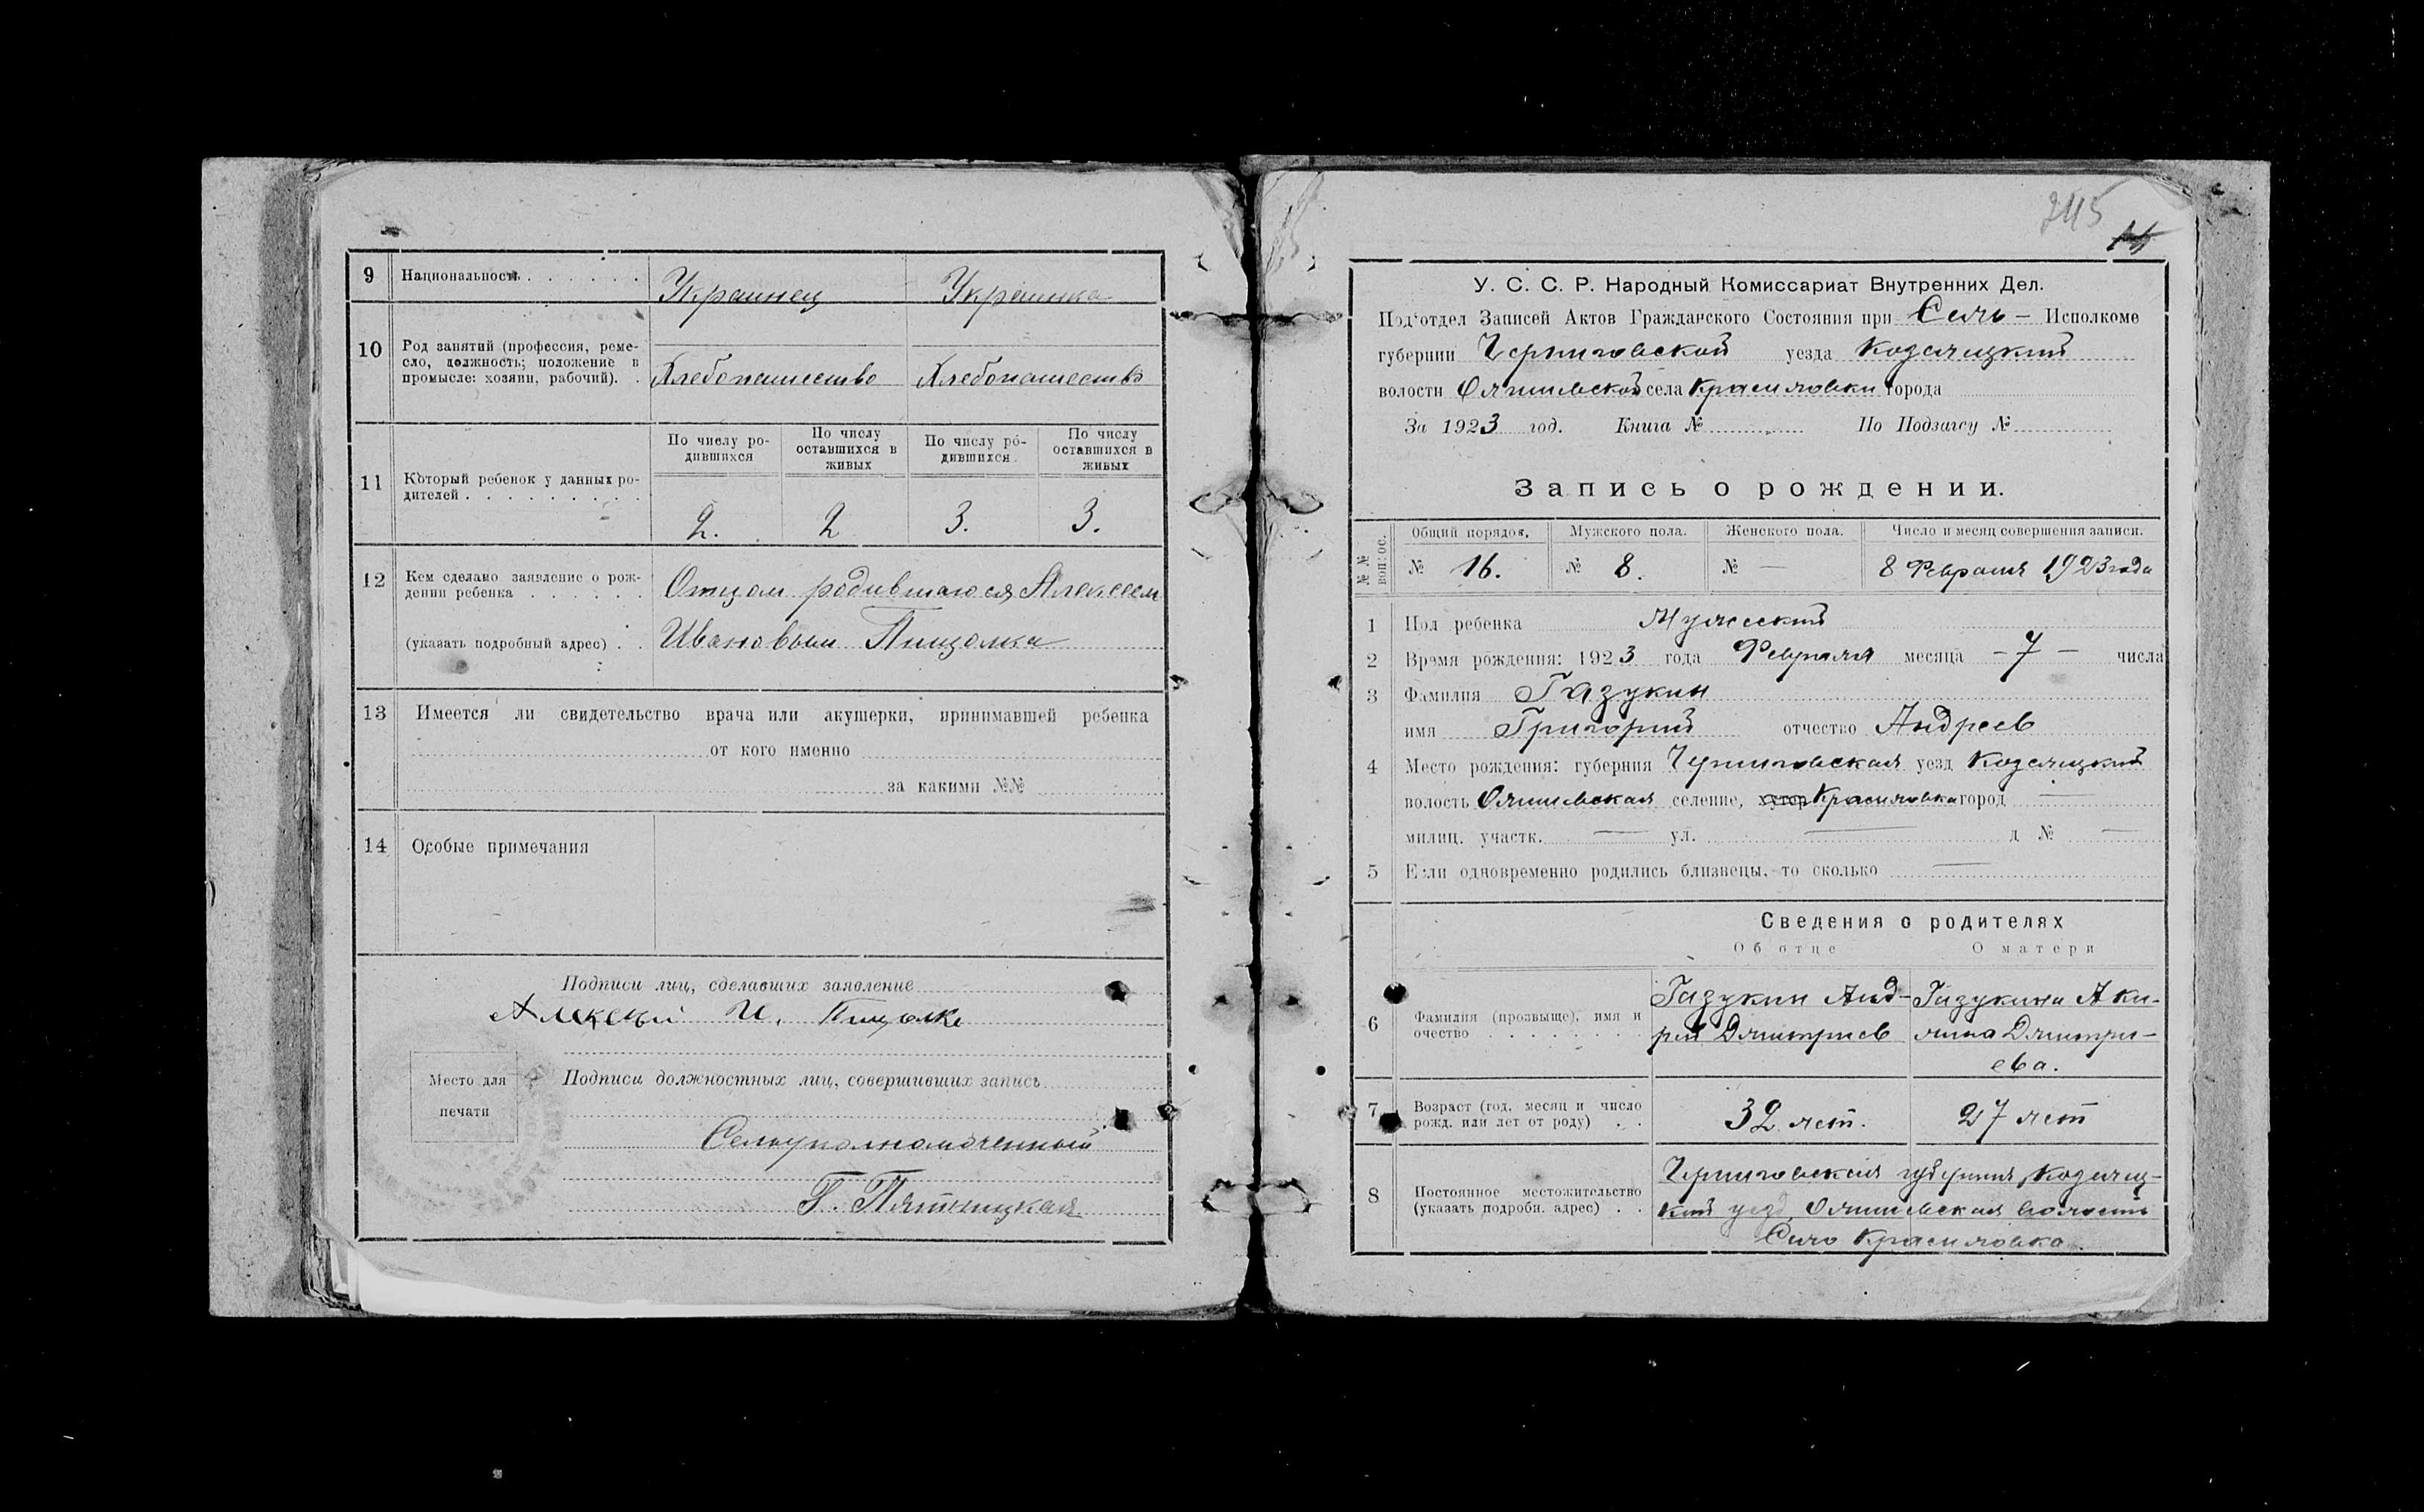 9 Национальность Украинец Украинка
10 Род занятий (профессия, реме-
сло, должность; положение в
промысле: хозяин, рабочий). Хлебопашество Хлебопашество
11 Который ребенок у данных ро-
дителей
По числу ро-
дившихся
По числу
оставшихся в
живых
По числу ро-
дившихся
По числу
оставшихся в
живых
2. 2 3. 3.
12 Кем сделано заявление о рож-
дении ребенка Отцом родившагося Алексеем
(указать подробный адрес) Ивановым Пищолка
13 Имеется ли свидетельство врача или акушерки, принимавшей ребенка
от кого именно
за какими №№
14 Особые примечания
Подписи лиц, сделавших заявление
Алексей И. Пищолка
Место для
печати
Подписи должностных лиц, совершивших запись
Сельуполномоченный
Г. Пятницкая
245
У. С. С. Р. Народный Комиссариат Внутренних Дел.
Под'отдел Записей Актов Гражданского Состояния при Селъ - Исполкоме
губернии Черниговской уезда Козелецкий
волости Олишевской села Красиловки города
За 1923 год. Книга № По Подзагсу №
Запись о рождении.
№ № вопрос.
Общий порядов. Мужского пола. Женского пола. Число и месяц совершения записи.
№ 16. № 8. № — 8 Февраля 1923 года
1 Пол ребенка Мужеский
2 Время рождения: 1923 года Февраля месяца - 7 - числа
3 Фамилия Газукин
имя Григорий отчество Андреев
4 Место рождения: губерния Черниговская уезд Козелецкий
волость Олишевская селение, хутор Красиловка город —
милиц. участк. — ул. — д № —
5 Если одновременно родились близнецы, то сколько —
Сведения о родителях
Об отце О матери
6 Фамилия (прозвыще), имя и
очество
Газукин Анд-
рей Дмитриев
Газукина Аки-
лина Дмитри-
ева.
7 Возраст (год, месяц и число
рожд. или лет от роду) 32 лет. 27 лет
8 Постоянное местожительство
(указать подробн. адрес)
Черниговская губерния, Козелец-
кий уезд, Олишевская волость
Село Красиловка.